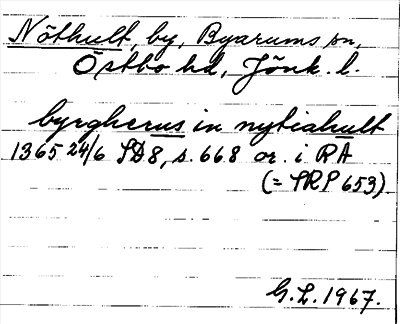 Nöthult, by, Byarums sn,
Östbo hd, Jönk. l.
byrgherus in nytiahult
1365 24/6 SD8, s. 668 or. i RA
(= SRP 653)
G.L. 1967.